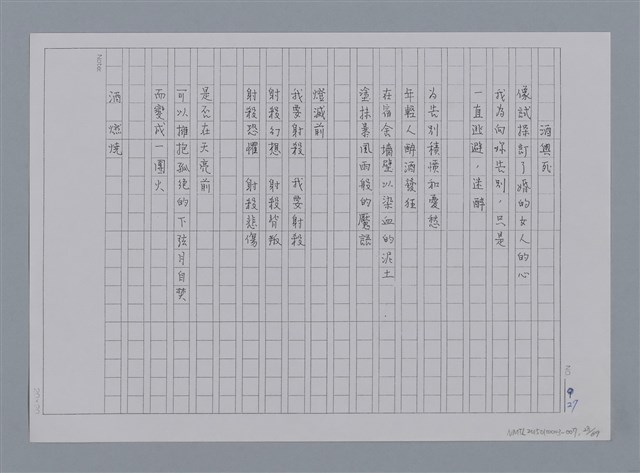 酒與死
像試探訂了婚的女人的心
我為向妳告別,只是
一直逃避,迷醉
為告別積憤和憂愁
年輕人醉酒發狂
在宿舍墻壁以染血的泥土
塗抹暴風雨般的魔語
燈滅前
我要射殺 我要射殺
射殺幻想 射殺背叛
射殺恐懼 射殺悲傷
是否在天亮前
可以擁抱孤絕的下弦月自焚
而變成一團火
酒 燃燒
9
27